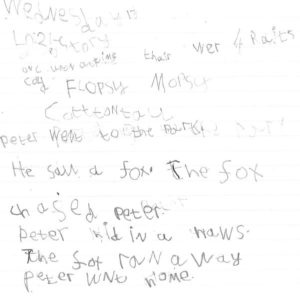 Wednesday
story
thair wer 4 Raits
FLOPSY MOPSY
Cottontail
Peter went to the
He saw a fox The fox
chased peter.
Peter hid in a haws.
The fox ran away
peter wnt home.